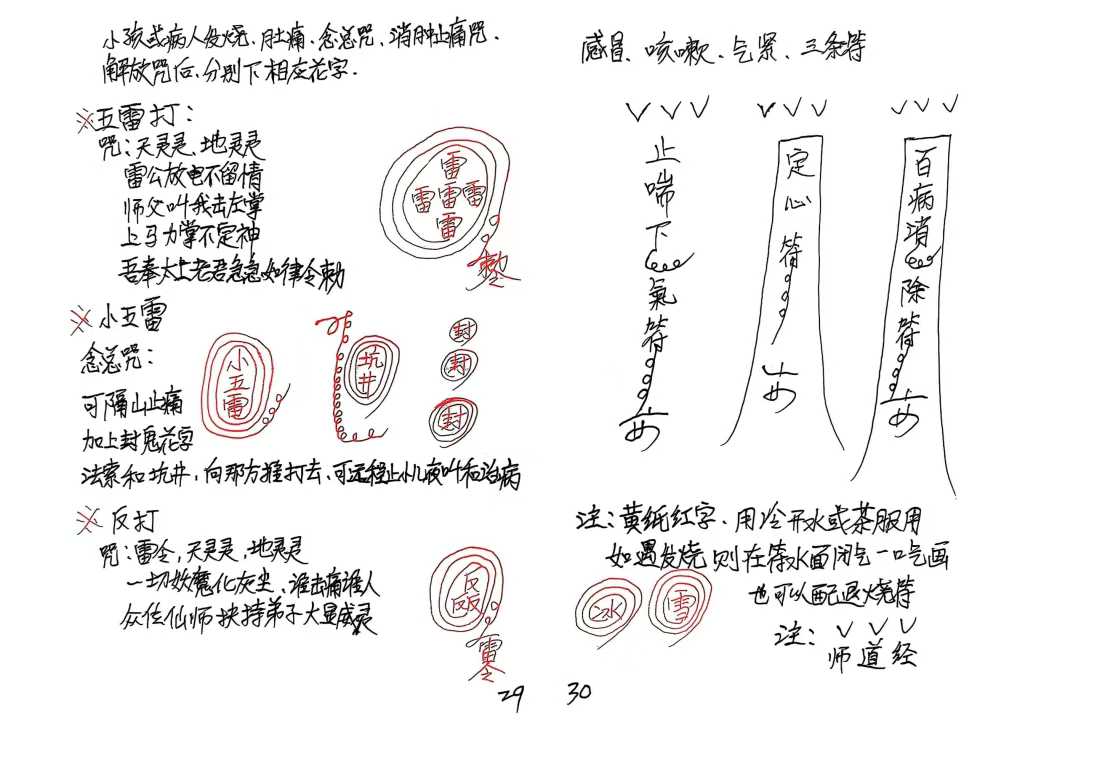 小孩或病人发烧、肚痛、念总咒、消肿止痛咒、
解放咒后、分别下相应花字.
※五雷打：
咒：天灵灵、地灵灵
雷公放电不留情
师父叫我击左掌
上马力掌不定神
吾奉太上老君急急如律令勅
雷
雷雷雷
雷
勅
※小五雷
念总咒：
可隔山止痛
加上封鬼花字
小五雷
坑井
封
封
封
法索和坑井，向那方推打去、可远程止小儿夜叫和治病
※反打
咒：雷令，天灵灵、地灵灵
一切妖魔化灰尘、谁击痛谁人
众位仙师扶持弟子大显威灵
反
反反
雷令
29
感冒、咳嗽、气紧、三条符
止喘下氣符
定心符
百病消除符
注：黄纸红字、用冷开水或茶服用
如遇发烧、则在符水面闭气一口气画
冰
雪
也可以配退火烧符
注：
师道经
30